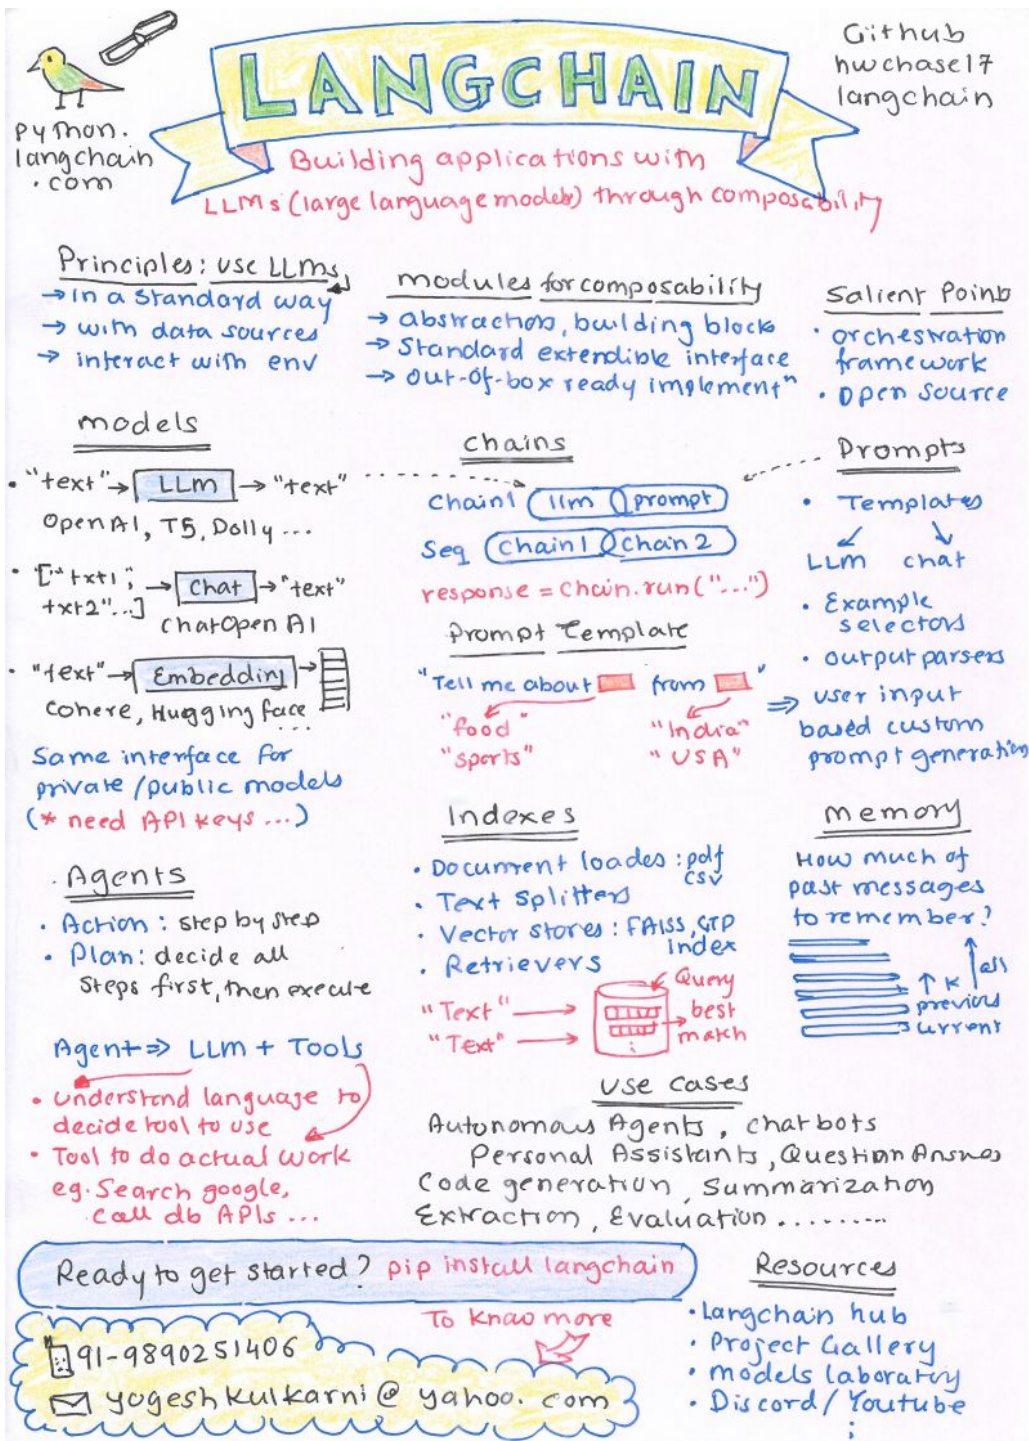 LANGCHAIN
Python.
langchain
.com
Github
hwchase17
langchain
Building applications with
LLMs (large language models) through composability
Principles: use LLMs
→ in a standard way
→ with data sources
→ interact with env
modules for composability
→ abstractions, building block
→ Standard extendible interface
→ out-of-box ready implement"
Salient Points
• orchestration
framework
• open source
models
• "text" → LLM → "text"
OpenAI, T5, Dolly ...
• ["txt1",
txt2"...] → Chat → "text"
ChatOpenAI
• "text" → Embedding →
Cohere, Hugging face ...
Same interface for
private/public models
(* need API keys ...)
chains
Chain1 llm prompt
Seq chain1 chain2
response = chain.run("...")
Prompt Template
"Tell me about from "
"food" "India"
"sports" "USA"
Prompts
• Templates
LLM chat
• Example
selectors
• output parsers
⇒ user input
based custom
prompt generation
Agents
• Action: step by step
• Plan: decide all
steps first, then execute
Agent ⇒ LLM + Tools
• understand language to
decide tool to use
• Tool to do actual work
eg. Search google,
call db APIs ...
Indexes
• Document loades: pdf
csv
• Text splitters
• Vector stores: FAISS, GTP
index
• Retrievers
Query
"Text" → best
"Text" → match
memory
How much of
past messages
to remember?
all
↑ K
previous
current
use cases
Autonomous Agents, chatbots
Personal Assistants, Question Answes
Code generation, Summarization
Extraction, Evaluation .........
Ready to get started? pip install langchain
To know more
91-9890251406
yogeshkulkarni@yahoo.com
Resources
• Langchain hub
• Project Gallery
• models laboratry
• Discord/Youtube